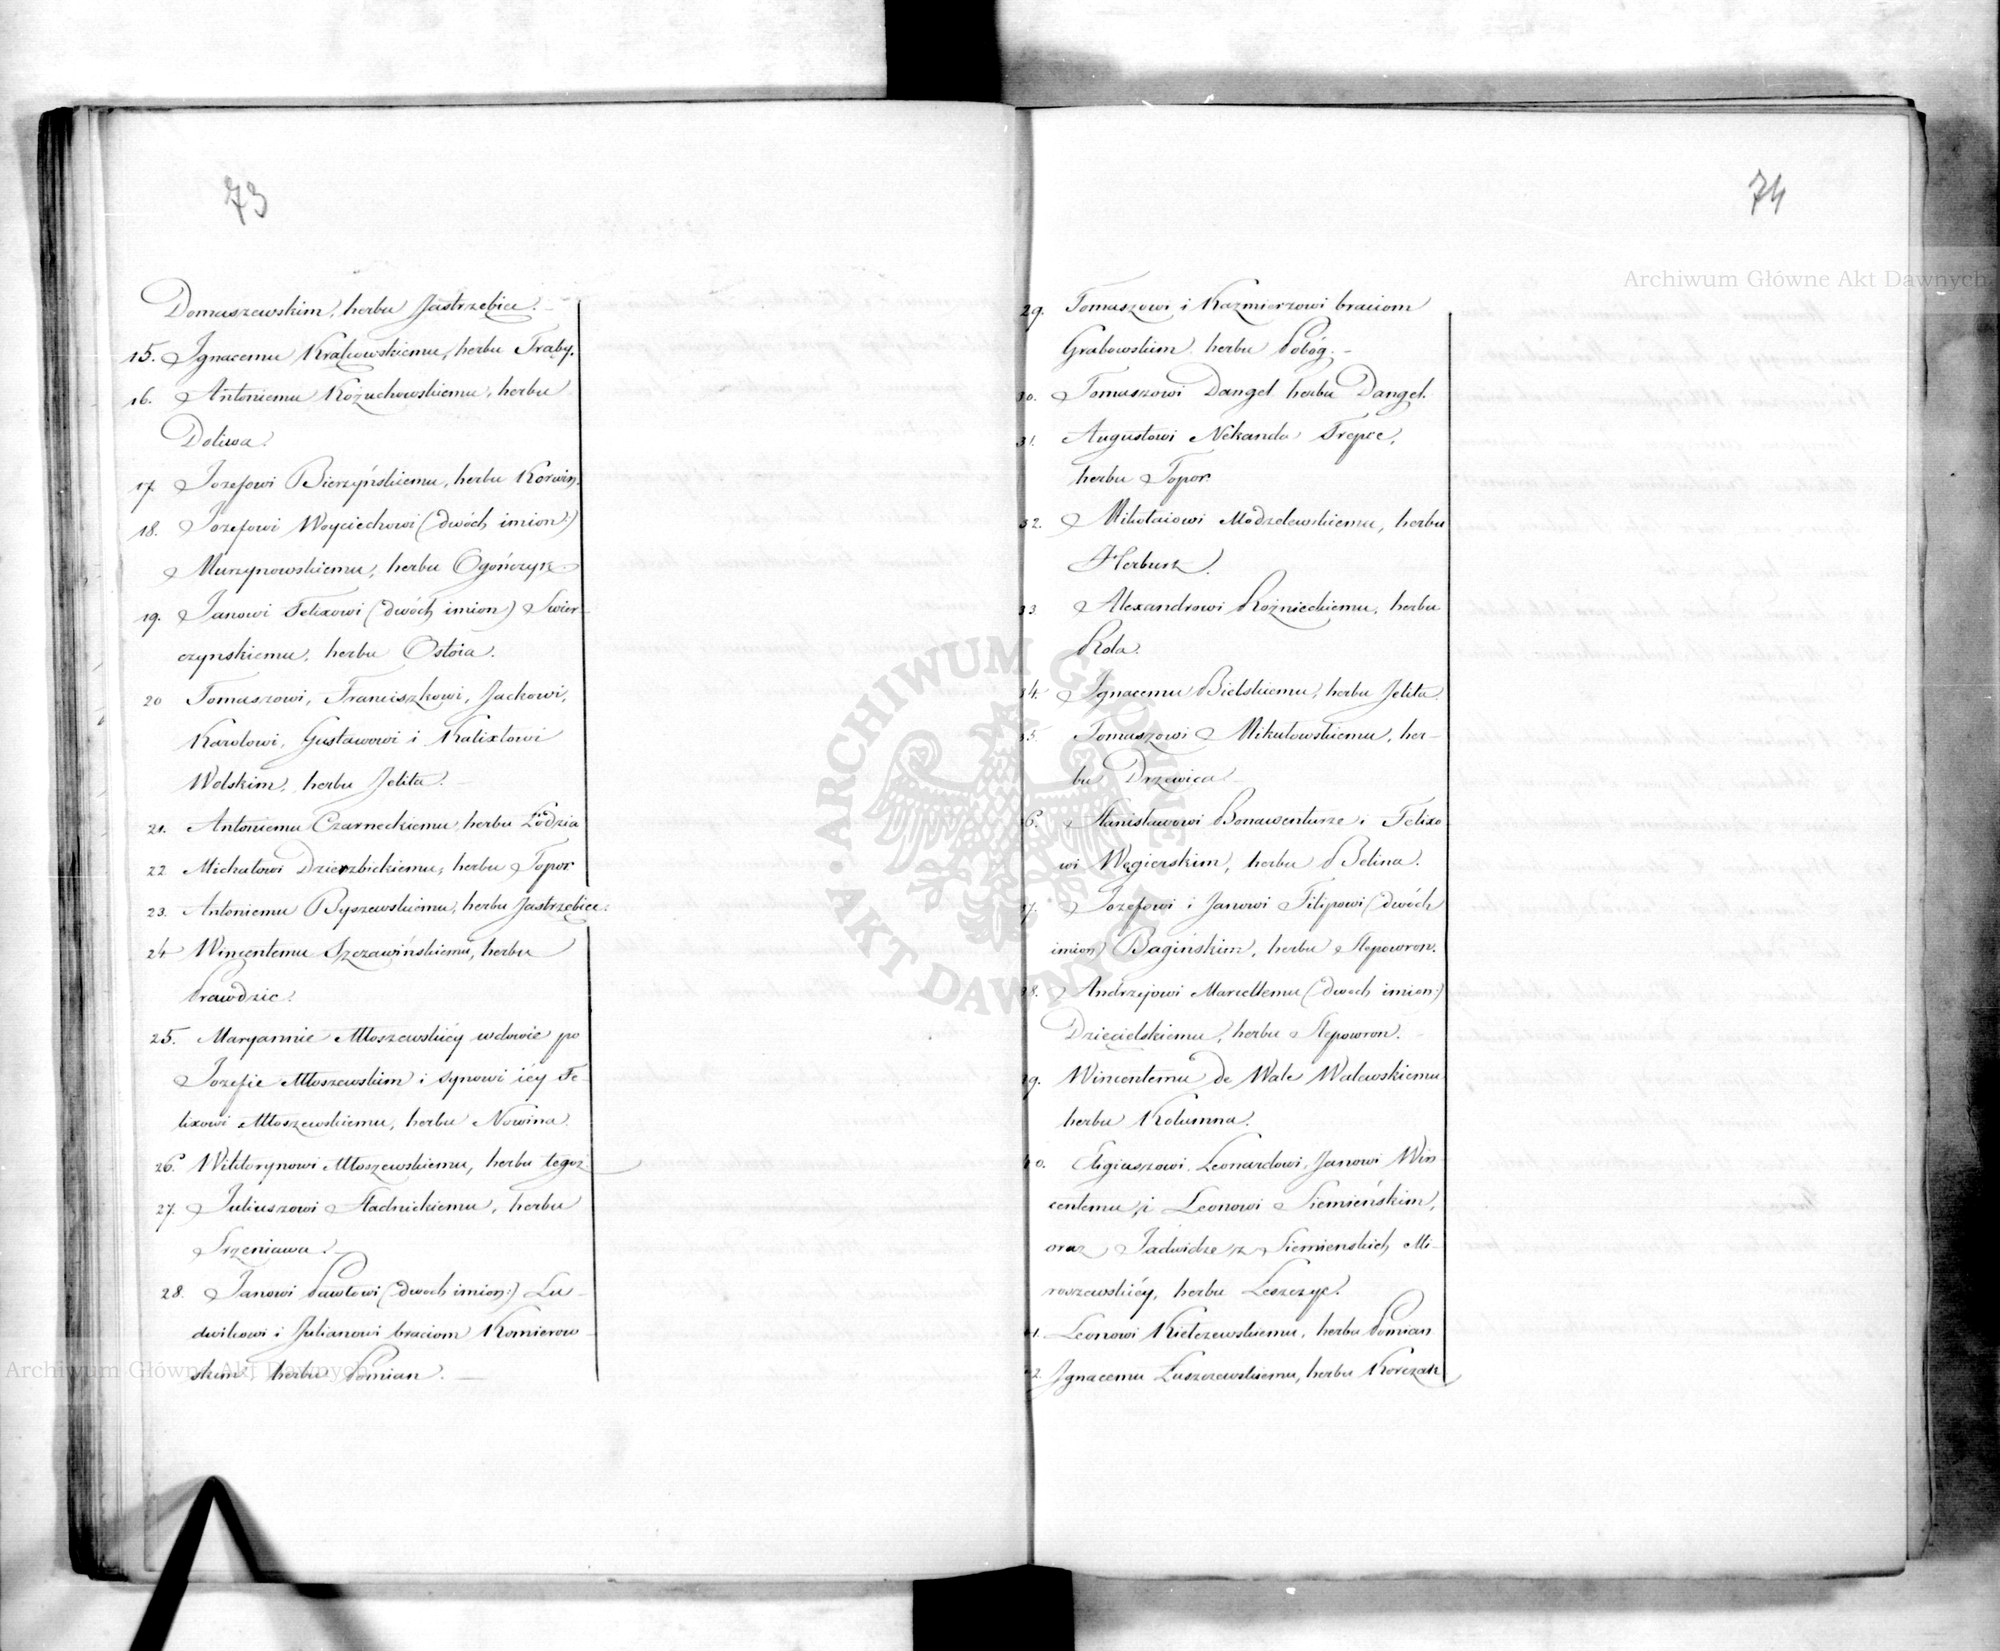 73
Domaszewskim, herbu Jastrzębiec.
15. Ignacemu Krakowskiemu, herbu Trąby.
16. Antoniemu Kożuchowskiemu, herbu
Doliwa.
17. Jozefowi Bierzyńskiemu, herbu Korwin.
18. Jozefowi Woyciechowi (dwóch imion:)
Murzynowskiemu, herbu Ogończyk.
19. Janowi Felixowi (dwóch imion) Swier-
czynskiemu, herbu Ostoia.
20 Tomaszowi, Franciszkowi, Jackowi,
Karolowi, Gustawowi i Kalixtowi
Wolskim, herbu Jelita. -
21. Antoniemu Czarneckiemu, herbu Łodzia
22 Michałowi Dzierzbickiemu, herbu Topor
23. Antoniemu Byszewskiemu, herbu Jastrzębiec.
24 Wincentemu Szczawińskiemu, herbu
Prawdzic.
25. Maryannie Młoszewskiéy wdowie po
Jozefie Młoszewskim i synowi iéy Fe-
lixowi Młoszewskiemu, herbu Nowina.
26. Wiktorynowi Młoszewskiemu, herbu tegoż.
27. Juliuszowi Stadnickiemu, herbu
Srzeniawa. -
28. Janowi Pawłowi (dwoch imion:) Lu-
dwikowi i Julianowi braciom Komierow-
skim, herbu Pomian. —
74
29. Tomaszowi i Kazmierzowi braciom
Grabowskim herbu Pobóg. -
30. Tomaszowi Dangel herbu Dangel.
31. Augustowi Nekanda Trepce,
herbu Topor.
32. Mikołaiowi Modzelewskiemu, herbu
Herburt.
33 Alexandrowi Rożnieckiemu, herbu
Rola.
34. Ignacemu Bielskiemu, herbu Jelita.
35. Tomaszowi Mikułowskiemu, her-
bu Drzewica -
36. Stanisławowi Bonawenturze i Felixo
wi Węgierskim, herbu Belina.
37. Jozefowi i Janowi Filipowi (dwóch
imion) Bagińskim, herbu Slepowron.
38. Andrzejowi Marcellemu (dwoch imion:)
Dzięcielskiemu, herbu Slepowron. -
39. Wincentemu de Wale Walewskiemu
herbu Kolumna.
40. Eligiuszowi, Leonardowi, Janowi Win-
centemu, i Leonowi Siemieńskim,
oraz Jadwidze z Siemienskich Mi-
roszewskiéy, herbu Leszczyc.
41. Leonowi Kiełczewskiemu, herbu Pomian
42. Ignacemu Łuszczewskiemu, herbu Korczak
ARCHIWUM GŁÓWNE AKT DAWNYCH
Archiwum Główne Akt Dawnych
Archiwum Główne Akt Dawnych